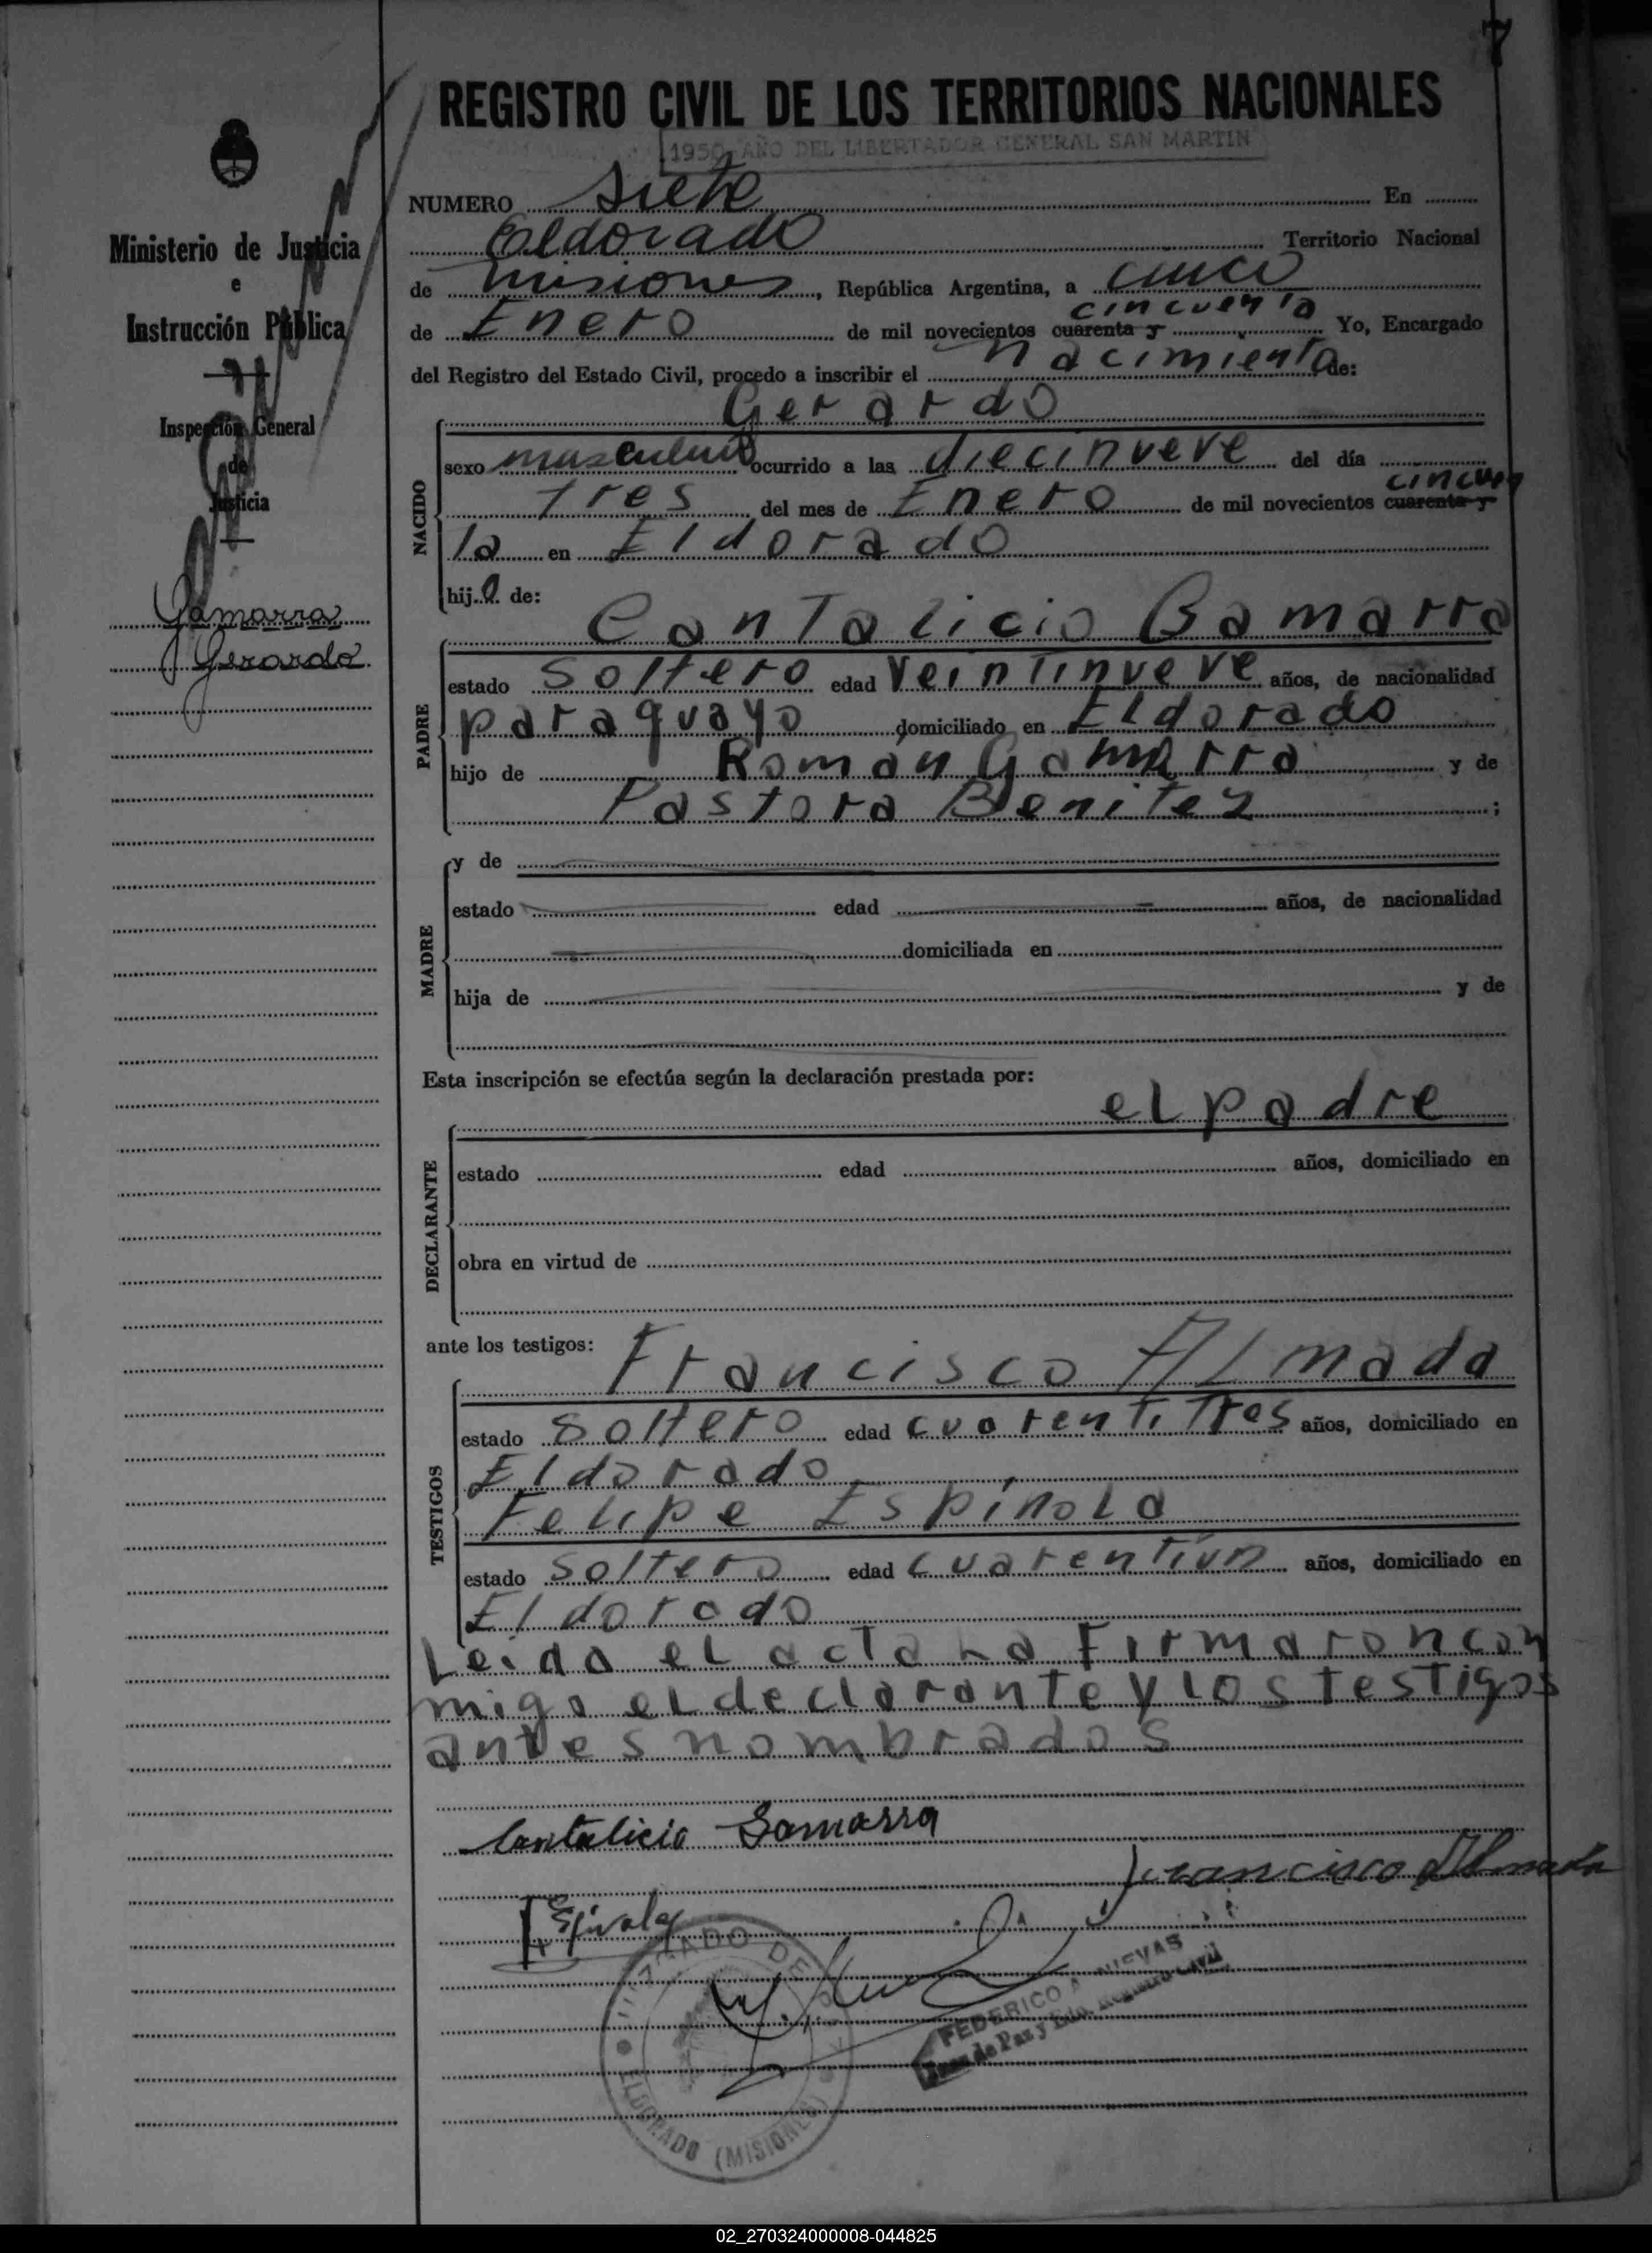 7
REGISTRO CIVIL DE LOS TERRITORIOS NACIONALES
1950, AÑO DEL LIBERTADOR GENERAL SAN MARTIN
NUMERO siete En
Eldorado Territorio Nacional
de misiones, República Argentina, a cinco
cincuenta
de Enero de mil novecientos cuarenta y Yo, Encargado
del Registro del Estado Civil, procedo a inscribir el nacimiento de:
Gerardo
Ministerio de Justicia
e
Instrucción Pública
Inspección General
de
Justicia
Gamarra
Gerardo
NACIDO
sexo masculino ocurrido a las diecinueve del día
cincuen
tres del mes de Enero de mil novecientos cuarenta y
ta en Eldorado
hijo de:
Cantalicio Gamarra
PADRE
estado soltero edad veintinueve años, de nacionalidad
paraguayo domiciliado en Eldorado
hijo de Roman Gamarra y de
Pastora Benitez ;
MADRE
y de
estado edad años, de nacionalidad
domiciliada en
hija de y de
Esta inscripción se efectúa según la declaración prestada por:
el padre
DECLARANTE
estado edad años, domiciliado en
obra en virtud de
ante los testigos:
Francisco Almada
TESTIGOS
estado soltero edad cuarentitres años, domiciliado en
Eldorado
Felipe Espínola
estado soltero edad cuarentiun años, domiciliado en
Eldorado
Leida el acta ha Firmaron con
migo el declarante y los testigos
antes nombrados
Cantalicio Gamarra
Francisco Almada
F Espinola
JUZGADO DE PAZ
ELDORADO (MISIONES)
FEDERICO A. NIEVAS
Juez de Paz y Edo. Registro Civil
02_270324000008-044825